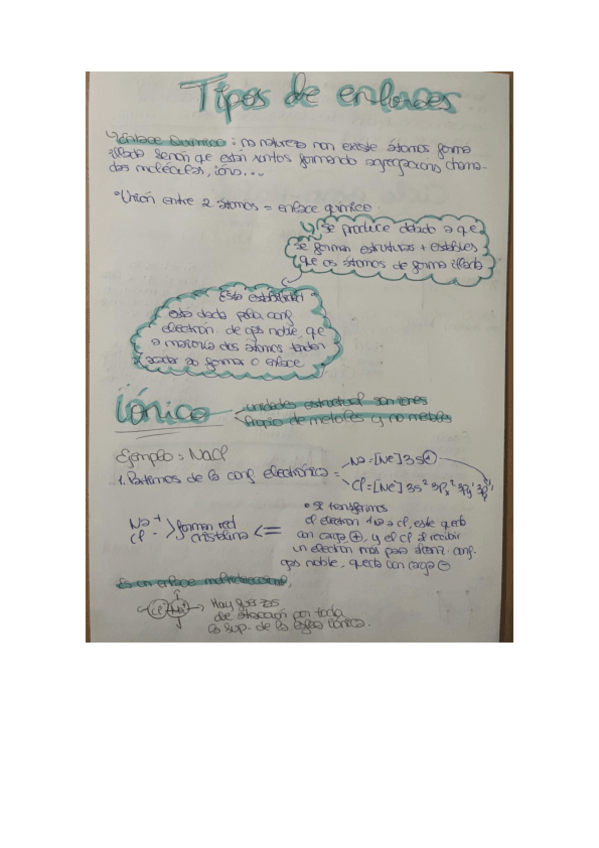 Tipos de enlaces
Enlace Químico: na natureza non existe átomos forma
illada senón que están xuntos formando agregacions chama-
das moléculas, ións...
Unión entre 2 átomos = enlace químico
se produce debido a que
se forman estruturas + estables
que os átomos de forma illada
Esta estabilidad
esta dada pola conf
electrón. de gas noble, que
a maioría dos átomos tenden
acadar ao formar o enlace
iónico
unidades estructural son iones
Propio de metales y no metales
Ejemplo: NaCl
1. Partimos de la conf electrónica = Na = [Ne] 3s①
Cl = [Ne] 3s² 3px² 3py² 3pz¹
• Si transferimos
el electron Na a Cl, este queda
con carga ⊕, y el Cl al recibir
un electron más para atenz. conf.
gas noble, queda con carga ⊖
Na +
Cl - > forman red
cristalina <=
Es un enlace multidireccional,
Cl- Na+
Hay fuerzas
de atracción por toda
la sup. de la esfera iónica.